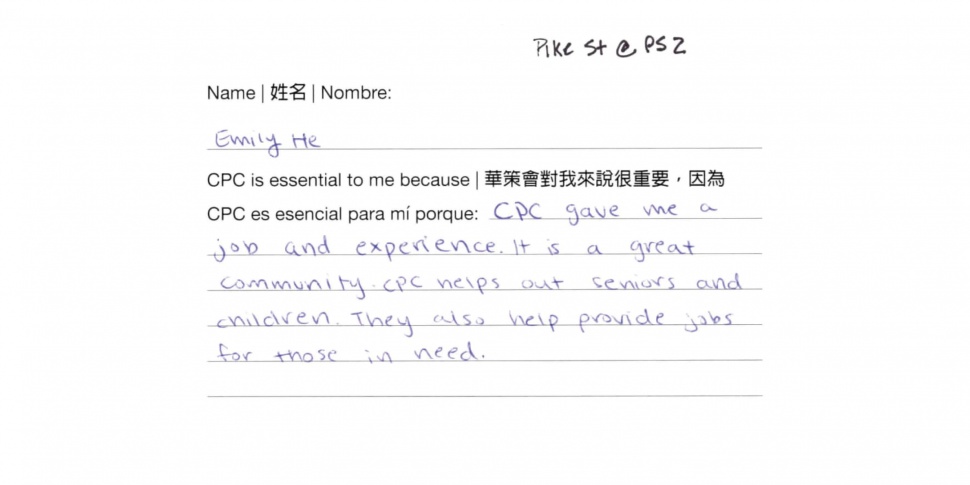 Pike St @ PS 2
Name | 姓名 | Nombre:
Emily He
CPC is essential to me because | 華策會對我來說很重要，因為
CPC es esencial para mí porque: CPC gave me a
job and experience. It is a great
community. CPC helps out seniors and
children. They also help provide jobs
for those in need.